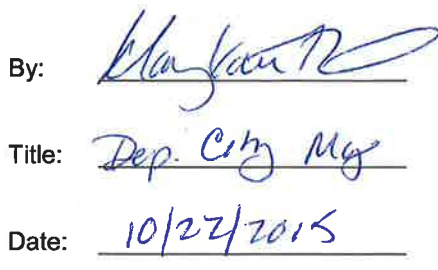 By:
Title: Dep. City Mgr
Date: 10/22/2015